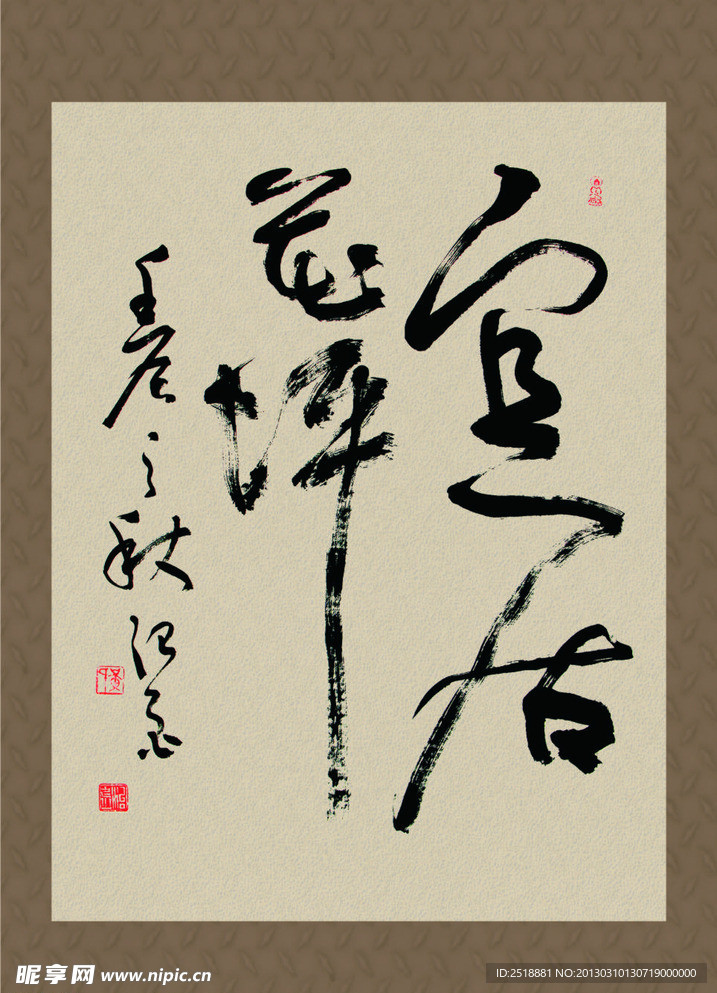 宜居
花坪
壬辰之秋
昵享网 www.nipic.cn
ID:2518881 NO:20130310130719000000